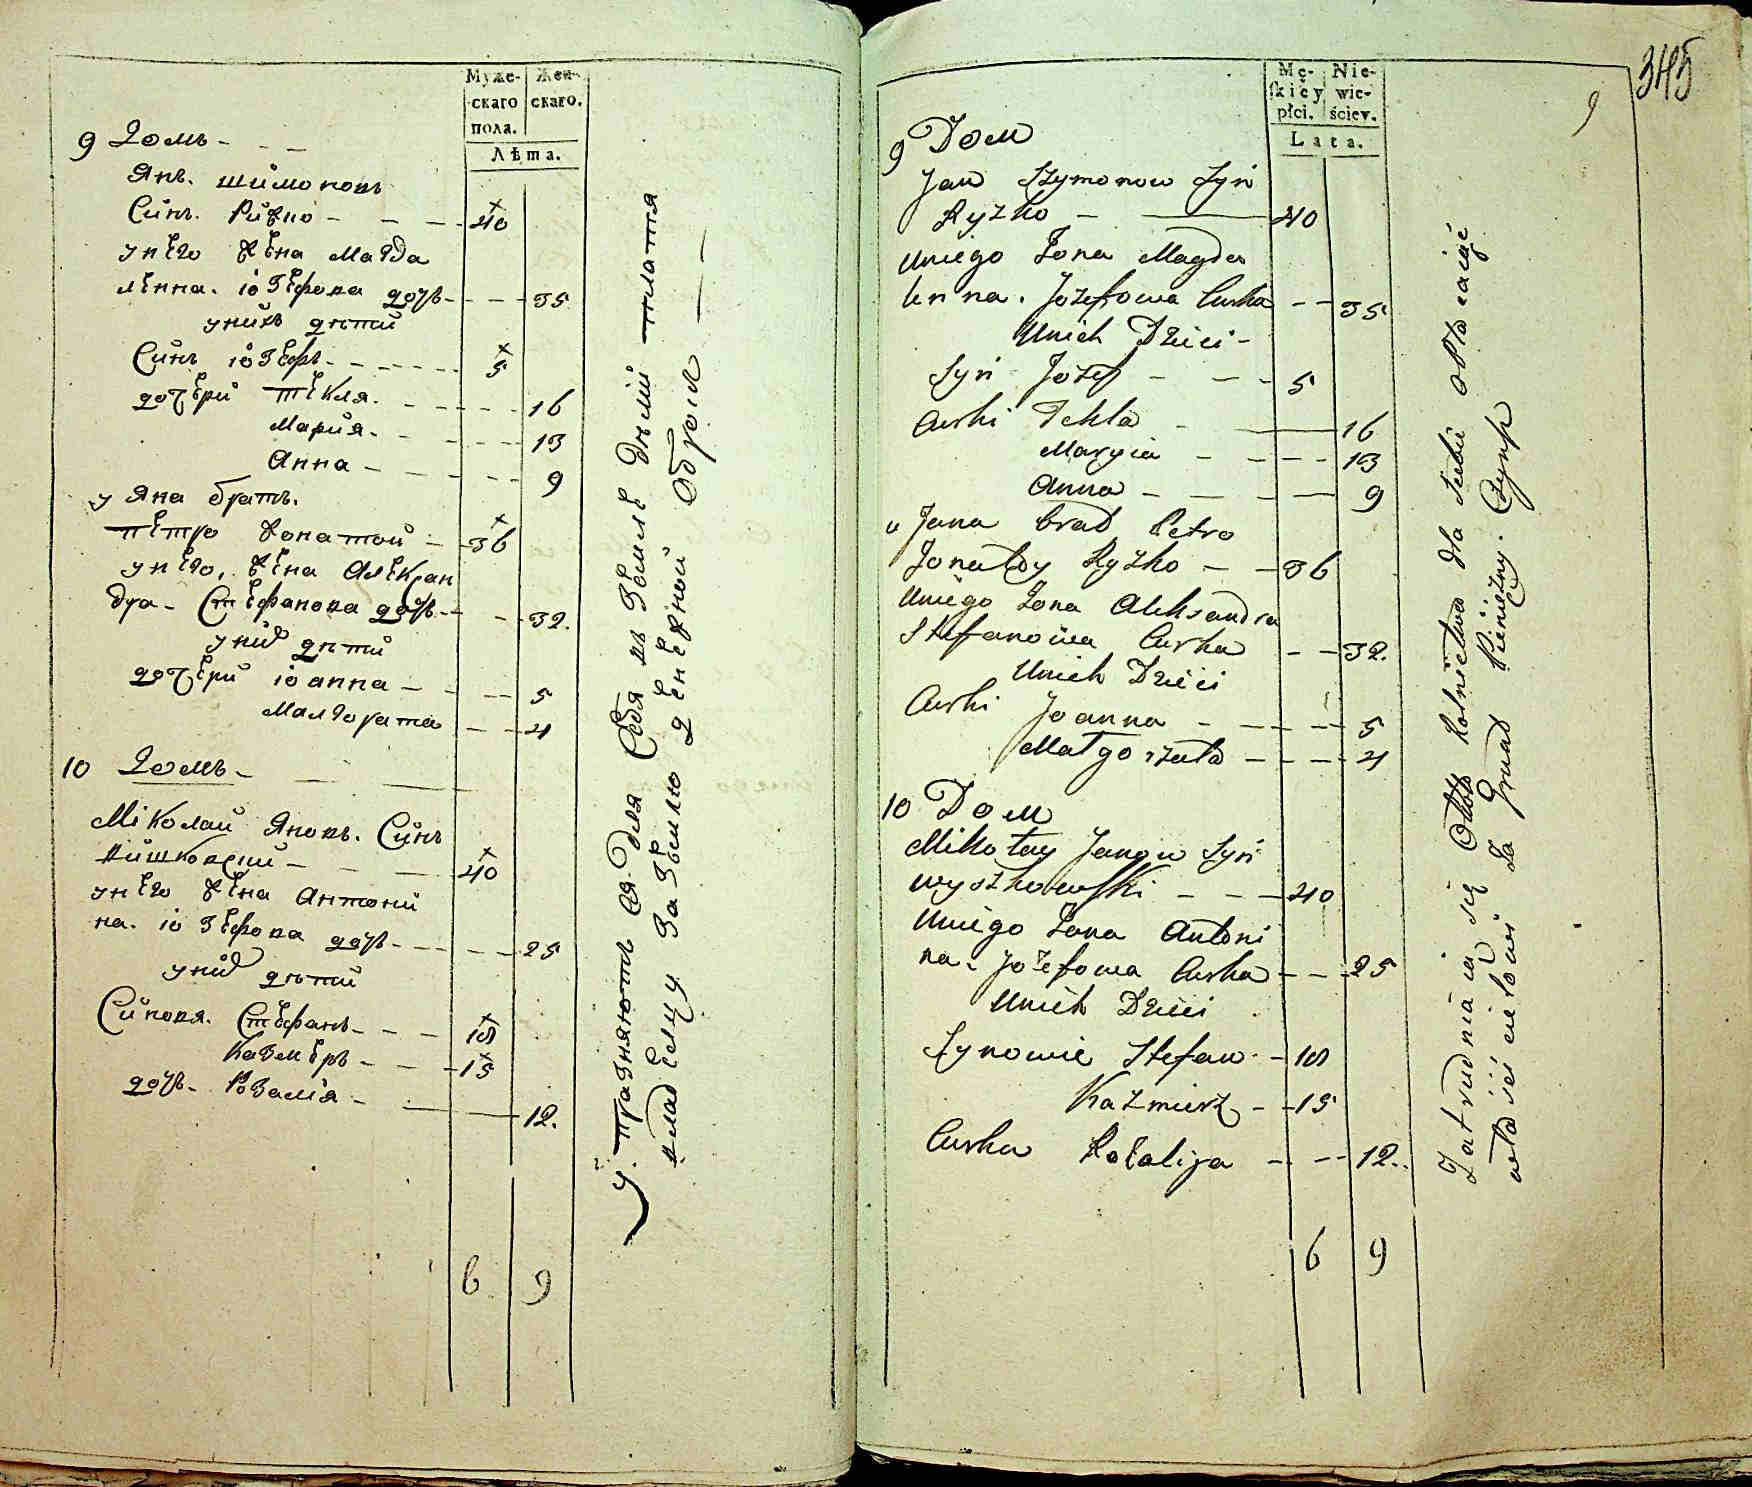 Муже-
скаго
пола.
Жен-
скаго.
Лѣта.
9 Домъ - - -
Янъ. шимоновъ
Синъ. Рижко - - - 40
унего жена Магда
ленна. іозефова дочь - - - 35
унихъ дѣти
Синъ іозефъ - - - 5
дочери текля. - - - 16
Мария. - - - 13
Анна - - - 9
у Яна братъ.
петро жонатои - 36
унего, жена Алексан
дра - Стефанова дочь - - - 32.
уних дѣти
дочери іоанна - - - 5
Малгората - - - 4
10 Домъ -
Миколаи Яновъ. Синъ
вишковски - - - 40
унего жена Антони
на. іозефова дочь - - - 25
уних дѣти
Синовя. Стефанъ - - - 18
Казмеръ - - - 15
дочь - Розалія - - - 12.
6 9
упражняютъ ся для Себя въ земле дѣлии платя
владелцу за землю денежной оброк
345
9
Mę-
skiey
płci.
Nie-
wie-
ściey.
Lata.
9 Dom
Jan Szymonow Syn
Ryzko - 40
Uniego Żona Magda
lenna. Jozefowa Curka - - 35
Unich Dzieci -
Syn Jozef - - - 5
Curki Tekla - 16
Maryia - - - 13
Anna - - - 9
u Jana brad Petro
Jonaty Ryzko - - 36
Uniego Żona Aleksandra
Stefanowa Curka - - 32.
Unich Dzieci
Curki Joanna - - - 5
Małgorzata - - - 4
10 Dom
Mikołay Janow Syn
wyszkowski - - - 40
Uniego Żona Antoni
na. Jozefowa Curka - - - 25
Unich Dzieci
Synowie Stefan - 18
Kazmierz - - 15
Curka Rozaliia - - 12..
6 9
Zatrudniaią się Około Rolnictwa dla siebie opłacaiąć
właścicielowi Za Grunt Pieniężny. Czynsz